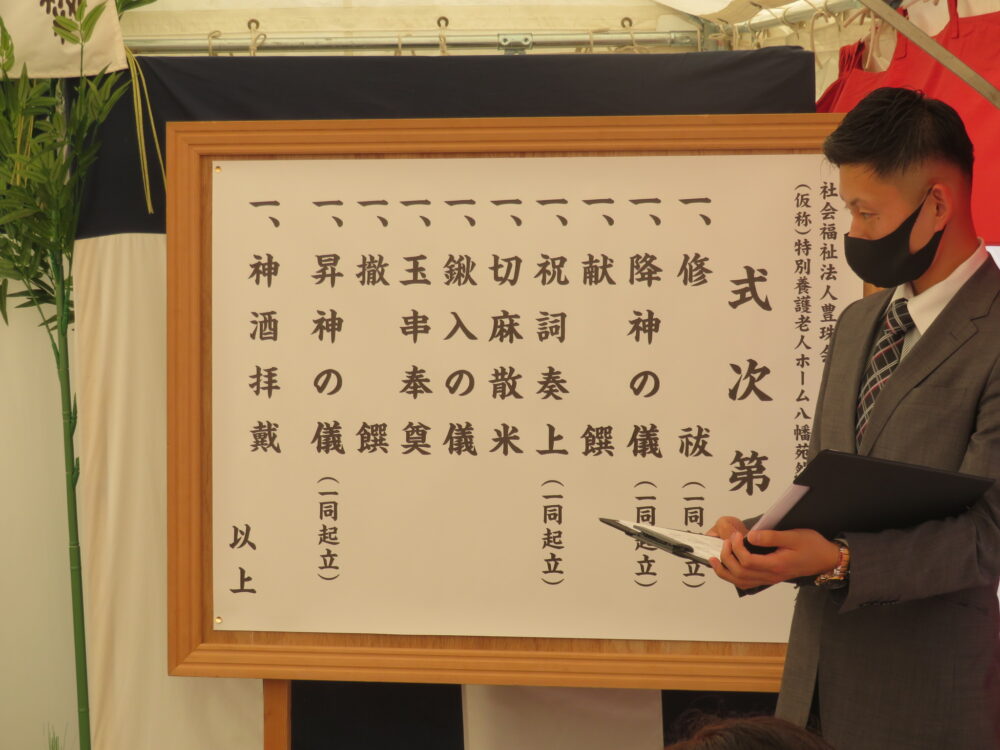 社会福祉法人豊珠会
(仮称)特別養護老人ホーム八幡苑
式次第
一、修祓(一同立)
一、降神の儀(一同起立)
一、献饌
一、祝詞奏上(一同起立)
一、切麻散米
一、鍬入の儀
一、玉串奉奠
一、撤饌
一、昇神の儀(一同起立)
一、神酒拝戴
以上